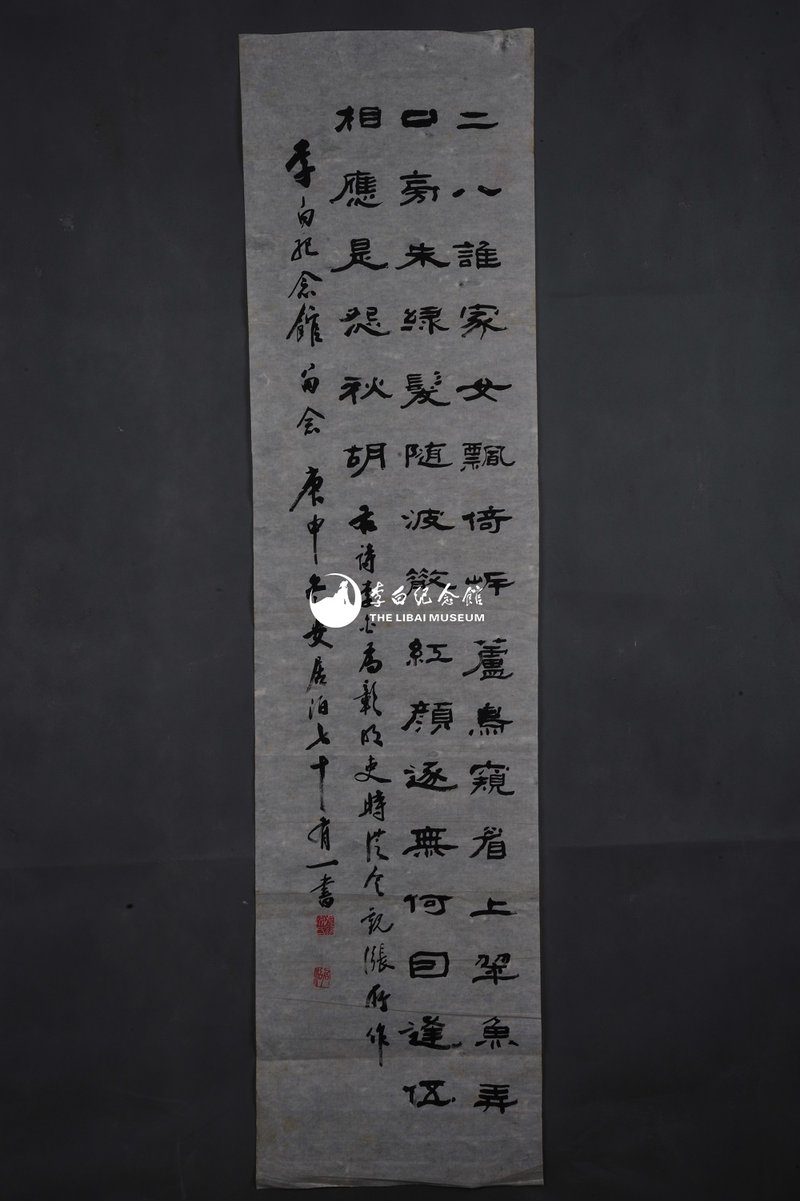 二八誰家女飄倚岸蘆鳥窺眉上翠魚弄
口旁朱綠髮随波散紅顔逐無何因逢伍
相應是怨秋胡
右詩李白為彰明吏時從令觀漲所作
李白紀念館 留念 庚申冬安居泊七十有一書
李白纪念館
THE LIBAI MUSEUM